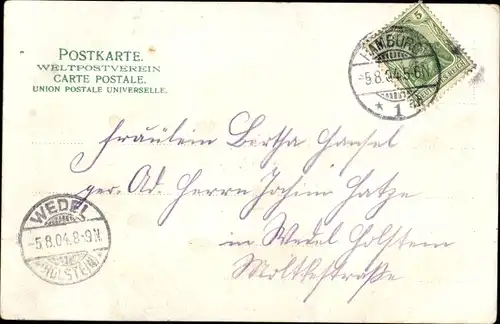 POSTKARTE.
WELTPOSTVEREIN
CARTE POSTALE.
UNION POSTALE UNIVERSELLE.
5
HAMBURG
-5.8.04.5-6N
* 1
Fräulein Bertha Hansel
per. Ad. Herrn Jochim Hatze
in Wedel Holstein
Moltkestraße
WEDEL
-5.8.04.8-9N.
*HOLSTEIN*